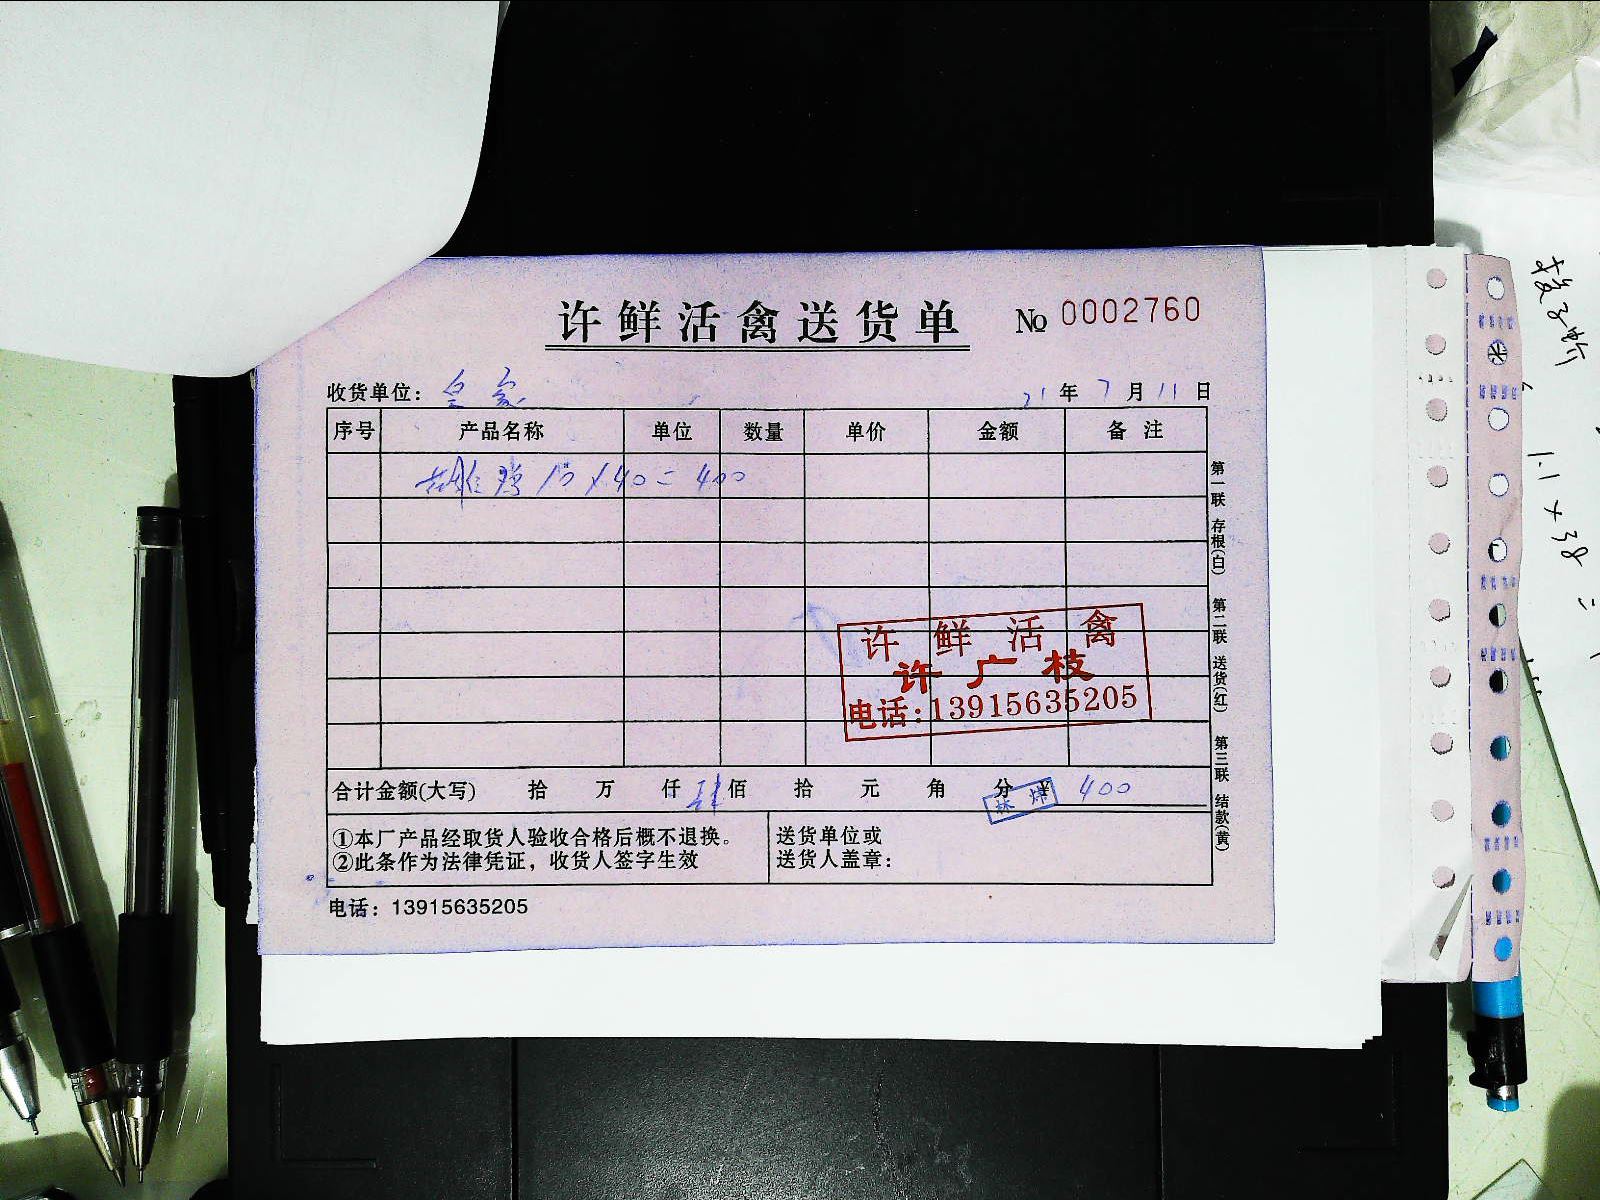 许鲜活禽送货单 № 0002760
收货单位：皇家 21年7月11日
序号 产品名称 单位 数量 单价 金额 备注
鸡 10×40=400
许鲜活禽
许广枝
电话:13915635205
合计金额(大写) 拾 万 仟 肆佰 拾 元 角 分 ¥ 400
林炜
①本厂产品经取货人验收合格后概不退换。
②此条作为法律凭证，收货人签字生效
送货单位或
送货人盖章：
电话：13915635205
第一联 存根(白) 第二联 送货(红) 第三联 结款(黄)
1.1×38=